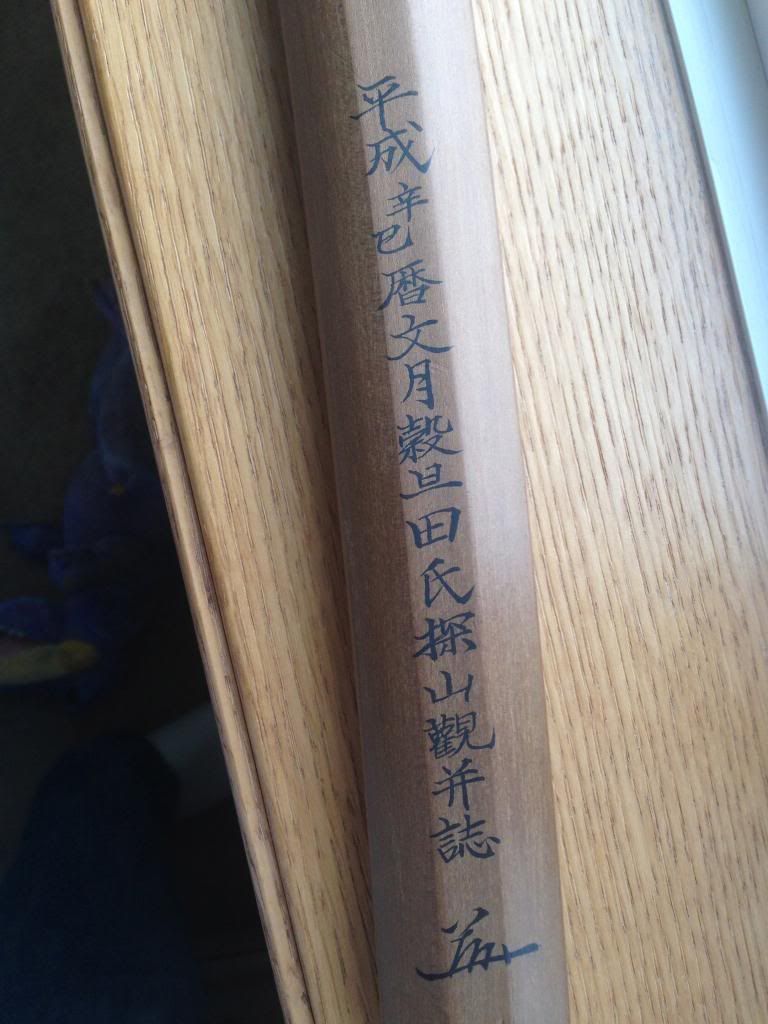 平成辛巳暦文月穀旦田氏探山觀并誌